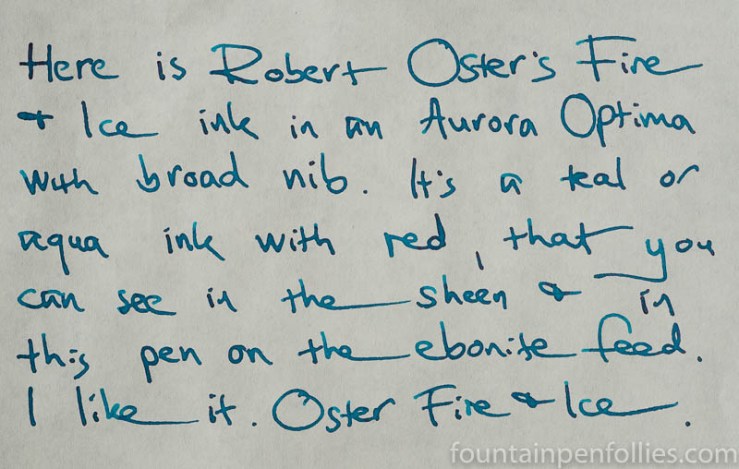 Here is Robert Oster's Fire
+ Ice ink in an Aurora Optima
with broad nib. It's a teal or
aqua ink with red, that you
can see in the sheen + in
this pen on the ebonite feed.
I like it. Oster Fire + Ice.
fountainpenfollies.com